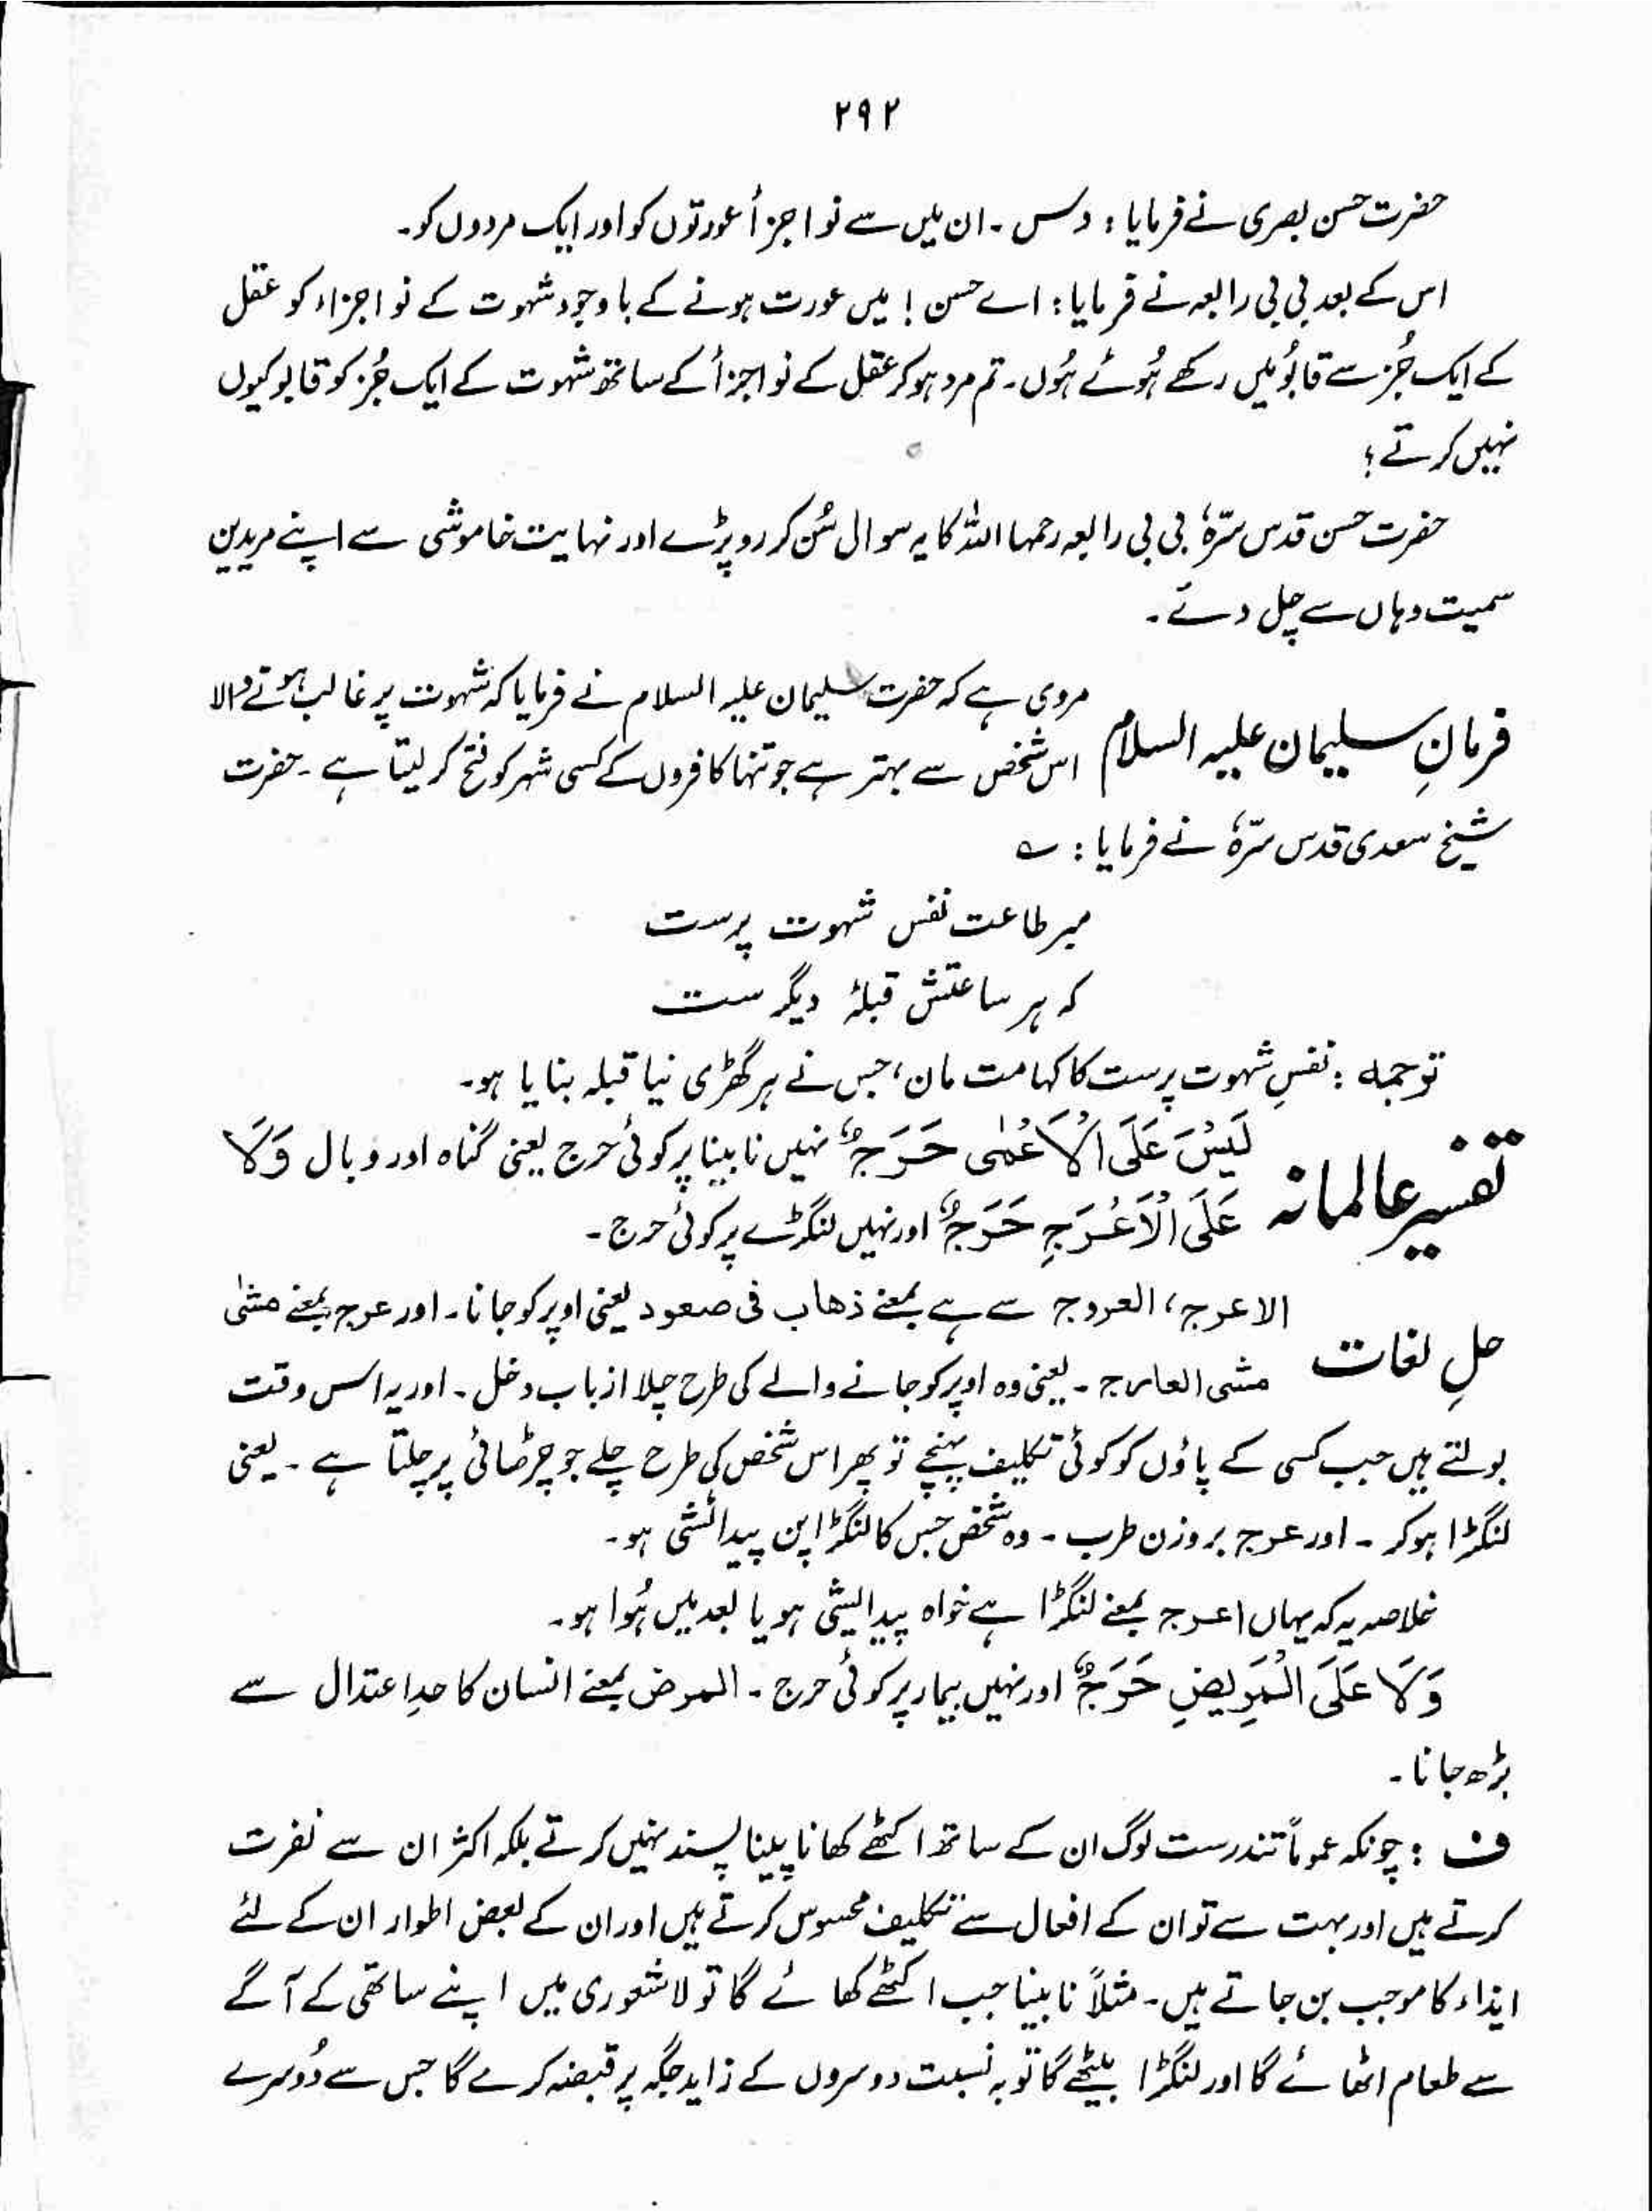 ۲۹۲
حضرت حسن بصری نے فرمایا: دس ۔ ان میں سے نو اجزأ عورتوں کو اور ایک مردوں کو۔
اس کے بعد بی بی رابعہ نے فرمایا: اے حسن! میں عورت ہونے کے باوجود شہوت کے نو اجزاء کو عقل
کے ایک جُز سے قابُو میں رکھے ہُوئے ہُوں۔ تم مرد ہو کر عقل کے نو اجزأ کے ساتھ شہوت کے ایک جُز کو قابو کیوں
نہیں کرتے؟
حضرت حسن قدس سرّہٗ بی بی رابعہ رحمہا اللہ کا یہ سوال سُن کر رو پڑے اور نہایت خاموشی سے اپنے مریدین
سمیت وہاں سے چل دئے۔
فرمانِ سلیمان علیہ السلام مروی ہے کہ حضرت سلیمان علیہ السلام نے فرمایا کہ شہوت پر غالب ہونے والا
اس شخص سے بہتر ہے جو تنہا کافروں کے کسی شہر کو فتح کر لیتا ہے ۔ حضرت
شیخ سعدی قدس سرّہٗ نے فرمایا: ؎
مبر طاعت نفس شہوت پرست
کہ ہر ساعتش قبلۂ دیگر ست
ترجمہ: نفسِ شہوت پرست کا کہا مت مان، جس نے ہر گھڑی نیا قبلہ بنایا ہو۔
تفسیر عالمانہ لَیْسَ عَلَی الْاَعْمٰی حَرَجٌ نہیں نابینا پر کوئی حرج یعنی گناہ اور وبال وَلَا
عَلَی الْاَعْرَجِ حَرَجٌ اور نہیں لنگڑے پر کوئی حرج ۔
حلِ لغات الاعرج، العروج سے ہے بمعنے ذھاب فی صعود یعنی اوپر کو جانا۔ اور عرج بمعنے مشی
مشی العارج ۔ یعنی وہ اوپر کو جانے والے کی طرح چلا از باب دخل ۔ اور یہ اس وقت
بولتے ہیں جب کسی کے پاؤں کو کوئی تکلیف پہنچے تو پھر اس شخص کی طرح چلے جو چڑھائی پر چلتا ہے ۔ یعنی
لنگڑا ہو کر ۔ اور عرج بروزن طرب ۔ وہ شخص جس کا لنگڑا پن پیدائشی ہو۔
خلاصہ یہ کہ یہاں اعرج بمعنے لنگڑا ہے خواہ پیدایشی ہو یا بعد میں ہُوا ہو۔
وَلَا عَلَی الْمَرِیضِ حَرَجٌ اور نہیں بیمار پر کوئی حرج ۔ المرض بمعنے انسان کا حدِ اعتدال سے
بڑھ جانا ۔
ف : چونکہ عموماً تندرست لوگ ان کے ساتھ اکٹھے کھانا پینا پسند نہیں کرتے بلکہ اکثر ان سے نفرت
کرتے ہیں اور بہت سے تو ان کے افعال سے تکلیف محسوس کرتے ہیں اور ان کے بعض اطوار ان کے لئے
ایذاء کا موجب بن جاتے ہیں۔ مثلاً نابینا جب اکٹھے کھائے گا تو لاشعوری میں اپنے ساتھی کے آگے
سے طعام اٹھائے گا اور لنگڑا بیٹھے گا تو بہ نسبت دوسروں کے زاید جگہ پر قبضہ کرے گا جس سے دُوسرے